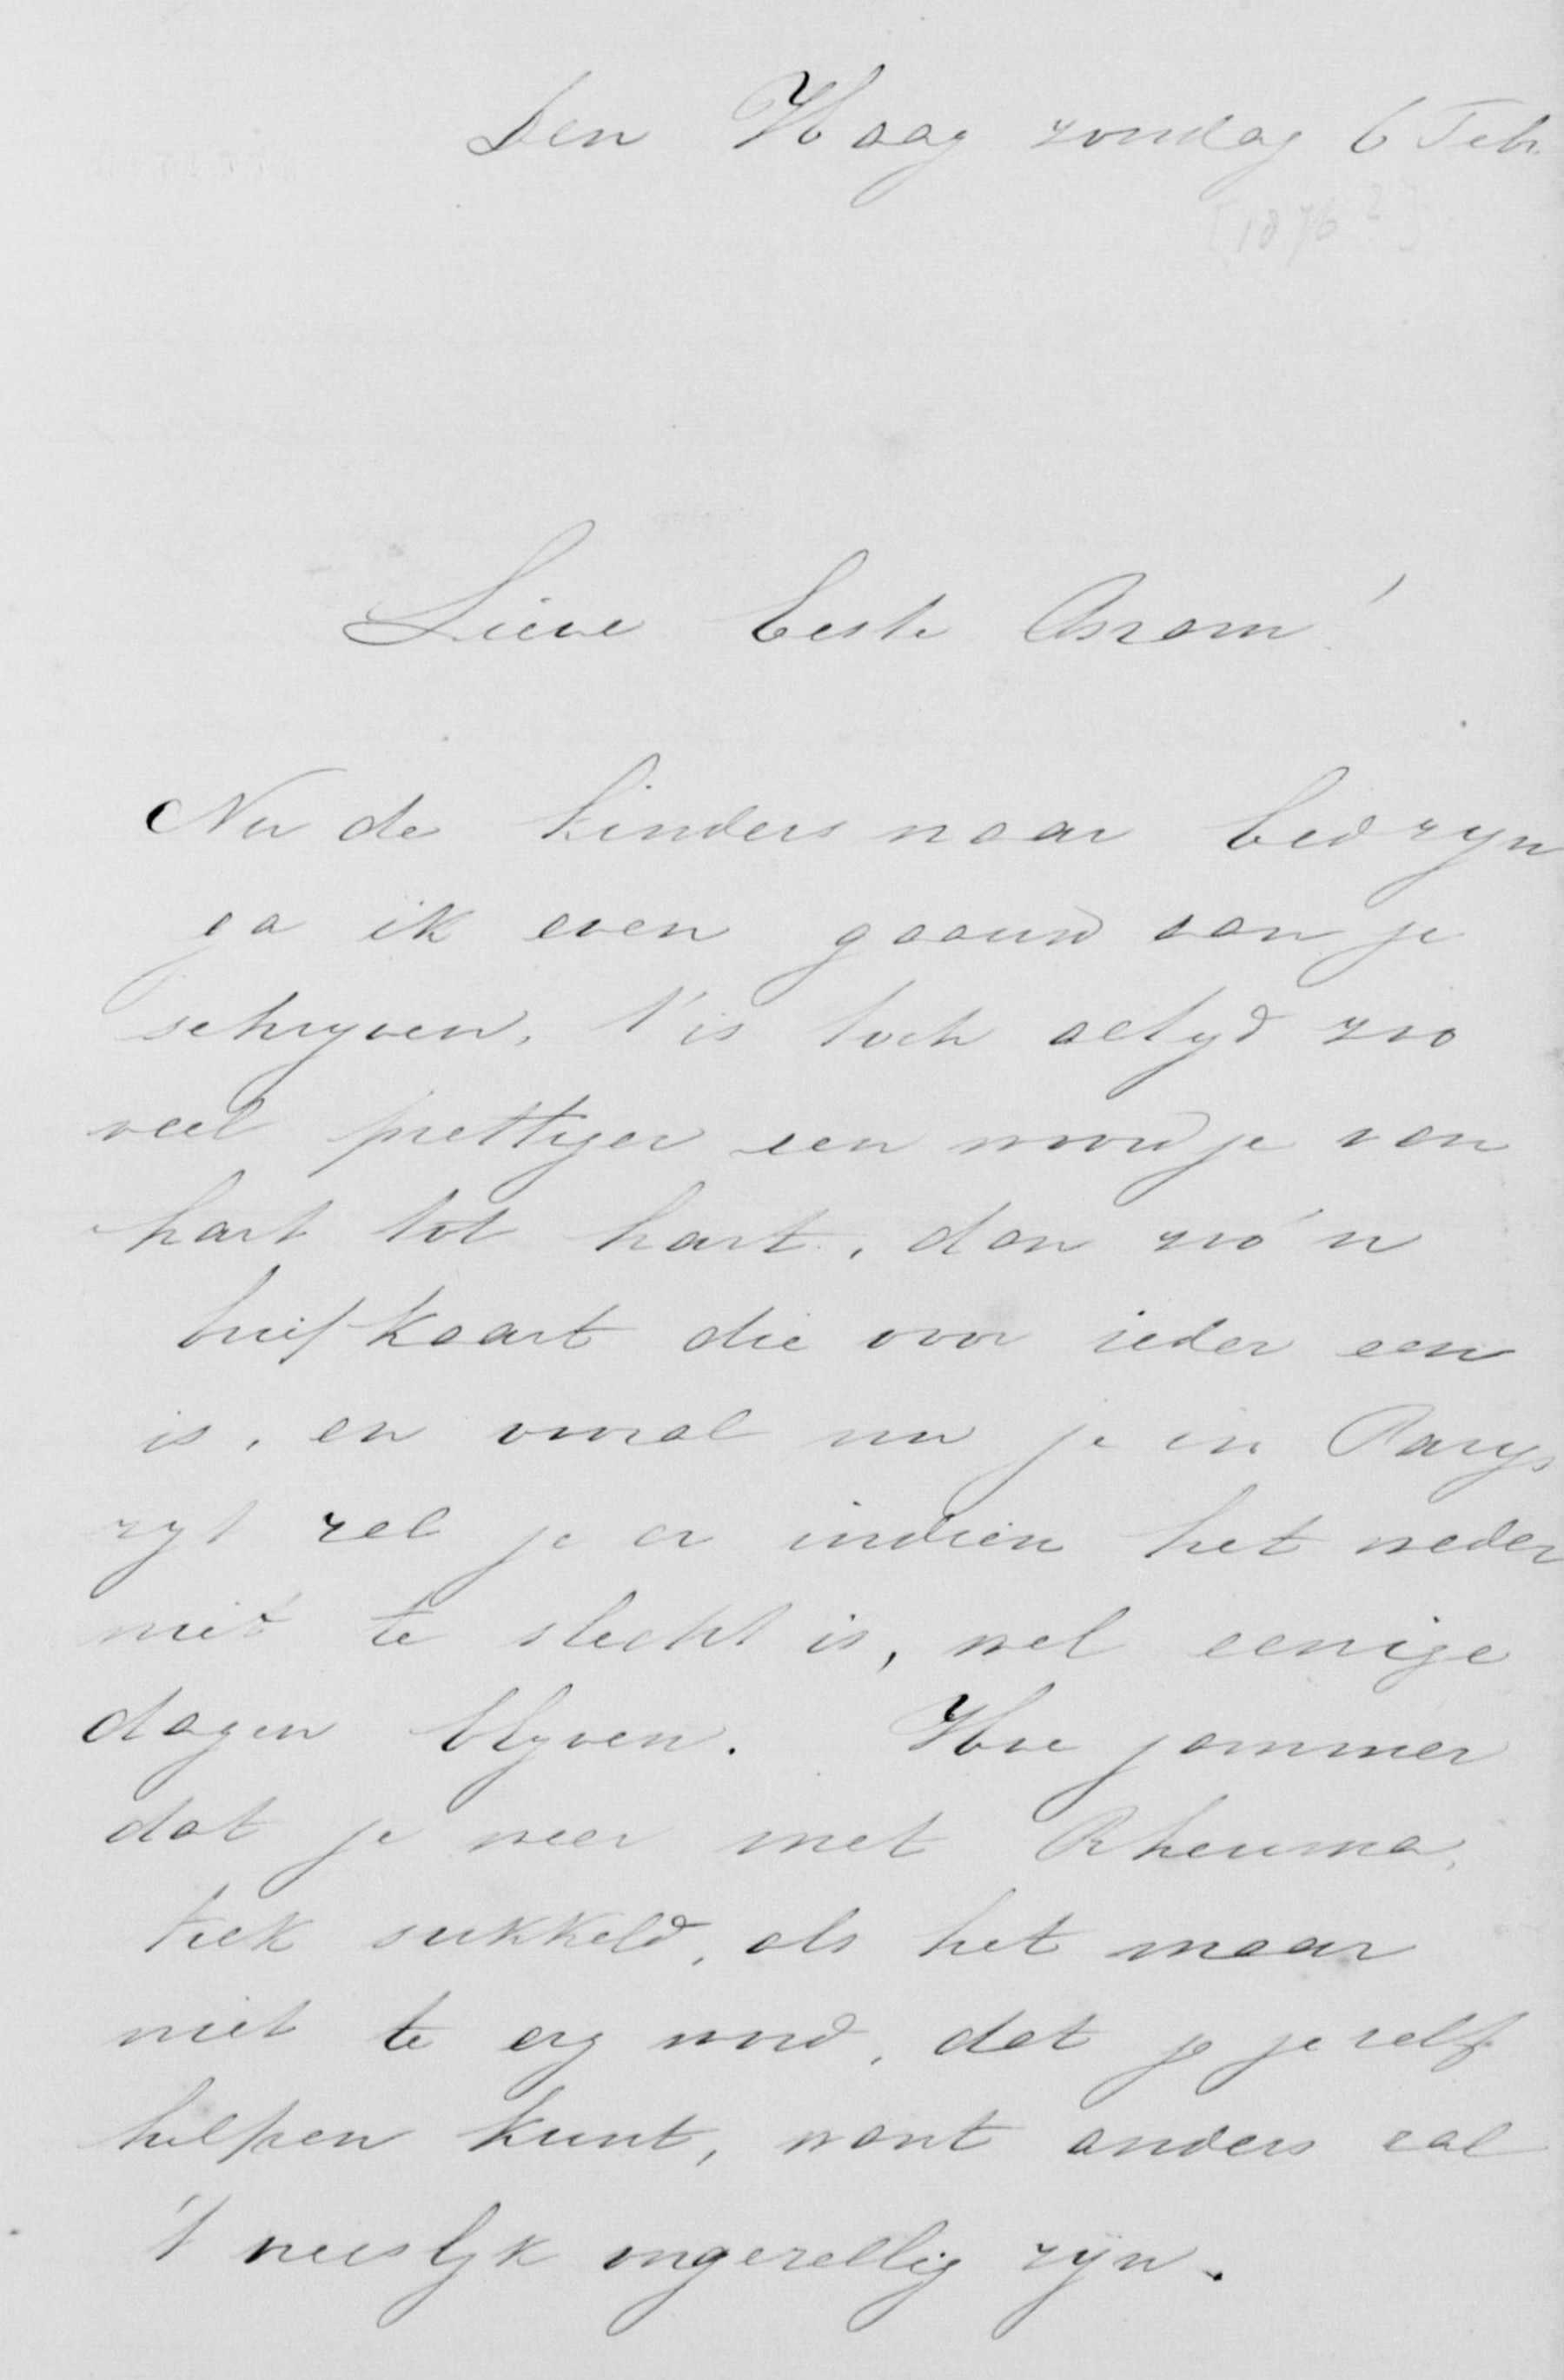 Den Haag zondag 6 Feb.
[1876?]
Lieve beste Bram!
Nu de kinders naar bed zyn
ga ik even gaauw aan je
schryven, t'is toch altyd zoo
veel prettiger een woordje van
hart tot hart, dan zoo'n
briefkaart die voor ieder een
is, en vooral nu je in Parys
zyt zal je er indien het weder
niet te slecht is, wel eenige
dagen blyven. Hoe jammer
dat je weer met Rheuma,
tiek sukkeld, als het maar
niet te erg word, dat je je zelf
helpen kunt, want anders zal
't ongezellig zyn.